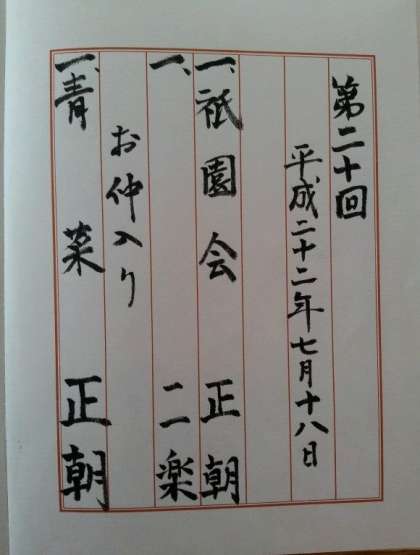 第二十回
平成二十二年七月十八日
一、祇園会 正朝
一、 二楽
お仲入り
一、青菜 正朝